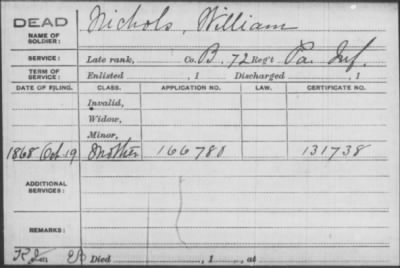 DEAD
NAME OF SOLDIER: Nichols, William
SERVICE: Late rank, Co. B. 72 Reg't Pa. Inf.
TERM OF SERVICE: Enlisted , 1 Discharged , 1
DATE OF FILING. CLASS. APPLICATION NO. LAW. CERTIFICATE NO.
Invalid,
Widow,
Minor,
1868 Oct 19 Mother 166780 131738
ADDITIONAL SERVICES:
REMARKS:
Died , 1 , at